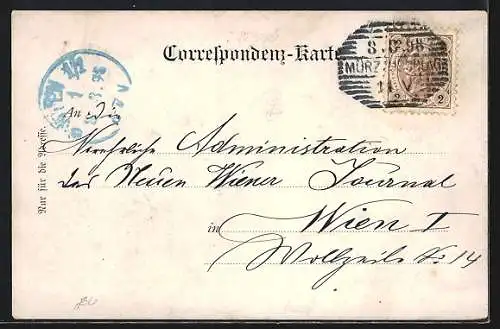 Correspondenz-Karte
8.3.98
MÜRZZUSCHLAG
WIEN 1/1
An die
Verehrliche Administration
des Neuen Wiener Journal
in Wien I
Wollzeile No: 14
Nur für die Adresse.
2 2